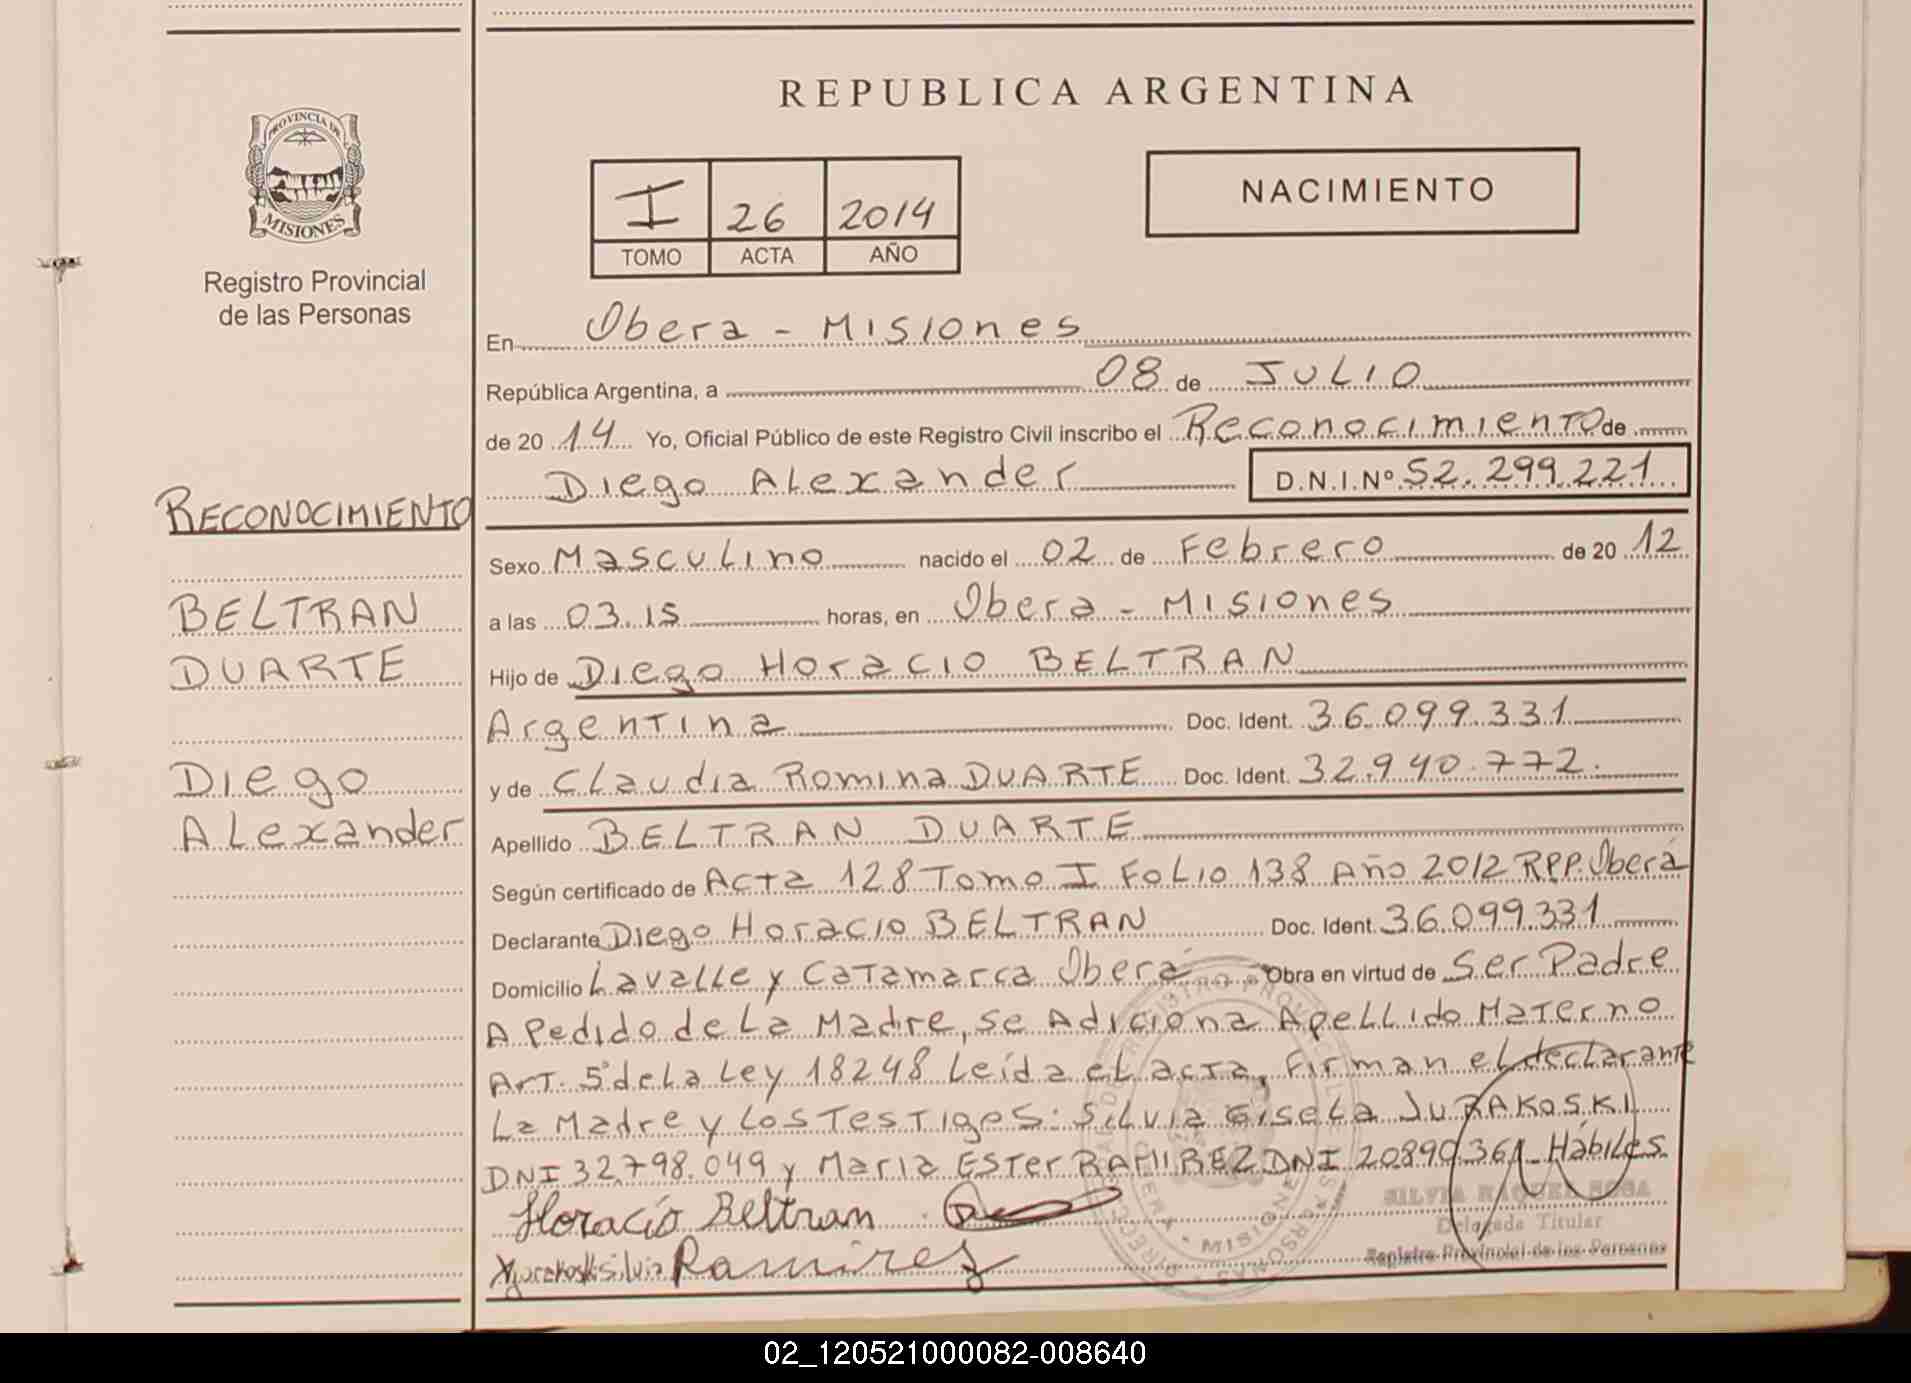 PROVINCIA DE
MISIONES
Registro Provincial
de las Personas
RECONOCIMIENTO
BELTRAN
DUARTE
Diego
Alexander
REPUBLICA ARGENTINA
I 26 2014
TOMO ACTA AÑO
NACIMIENTO
En Obera - Misiones
República Argentina, a 08 de JULIO
de 2014 Yo, Oficial Público de este Registro Civil inscribo el Reconocimiento de
Diego Alexander D.N.I.Nº 52.299.221
Sexo Masculino nacido el 02 de Febrero de 2012
a las 03.15 horas, en Obera - Misiones
Hijo de Diego Horacio BELTRAN
Argentina Doc. Ident. 36.099.331
y de Claudia Romina DUARTE Doc. Ident. 32.940.772.
Apellido BELTRAN DUARTE
Según certificado de Acta 128 Tomo I Folio 138 Año 2012 RPP. Oberá
Declarante Diego Horacio BELTRAN Doc. Ident. 36.099.331
Domicilio Lavalle y Catamarca Oberá Obra en virtud de Ser Padre
A Pedido de La Madre, se Adiciona Apellido Materno
Art. 5° de La Ley 18248 Leída el acta, Firman el declarante
La Madre y Los Testiges: Silvia Gisela JURAKOSKI
DNI 32.798.049 y Maria Ester RAMIREZ DNI 20890361 Hábiles
Horacio Beltran
Silvia Ramirez
SILVIA RAQUEL SOSA
Delegada Titular
Registro Provincial de las Personas
02_120521000082-008640